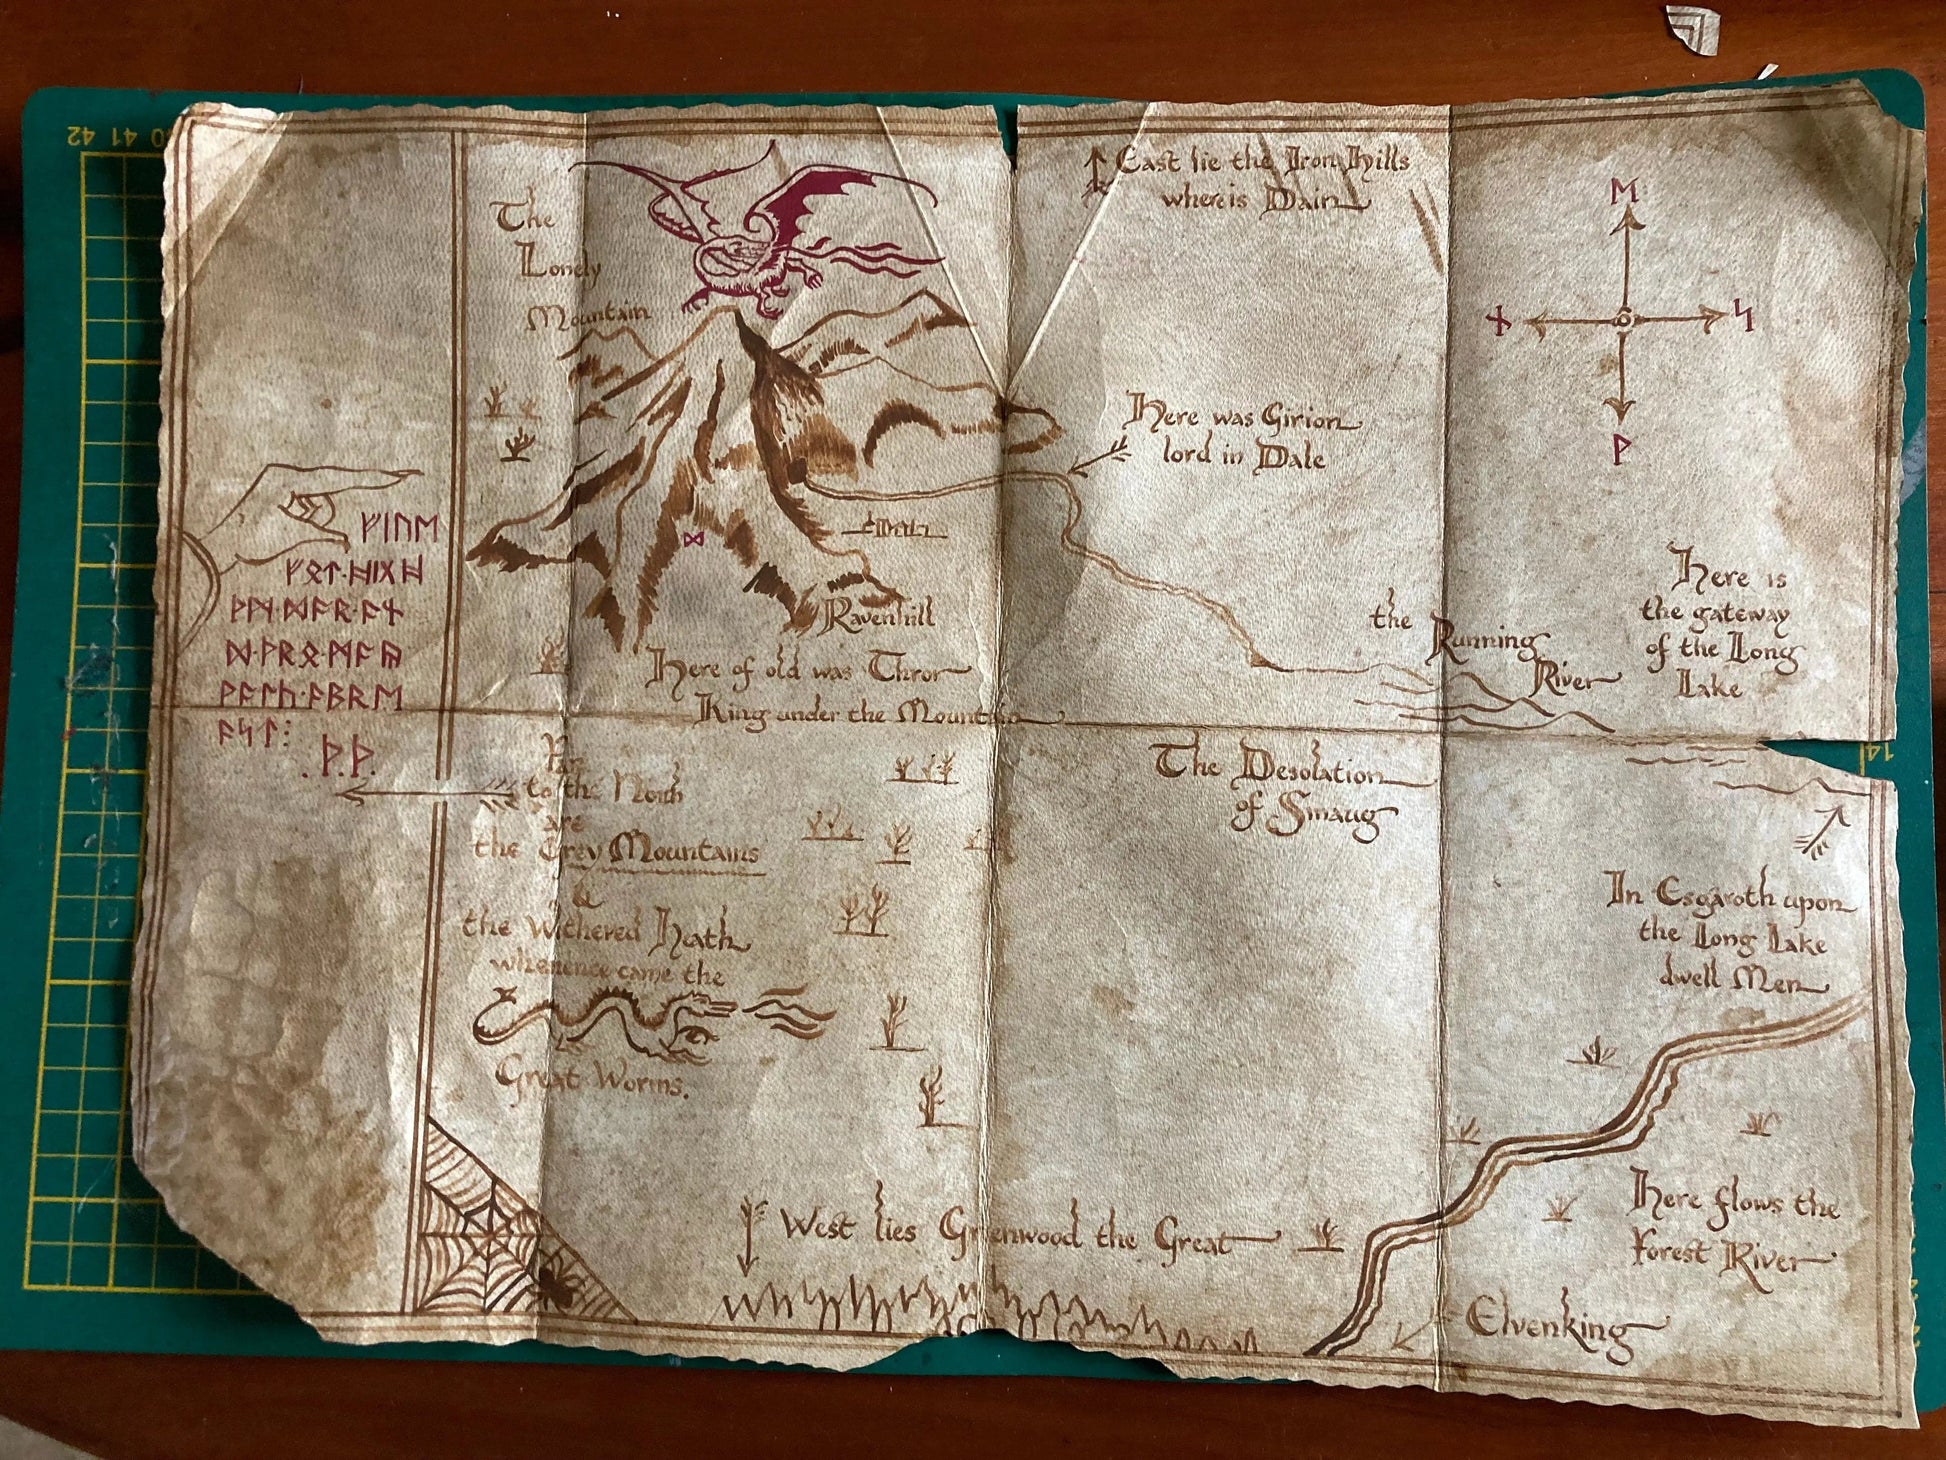 42 41
The
Lonely
Mountain
East lie the Iron Hills
where is Dain
ᛖ
ᚾ
ᛋ
ᚹ
Here was Girion
lord in Dale
ᚠᛁᚢᛖ
ᚠᛟᛏ·ᚻᛁᚷᚻ
ᚦᛖ·ᛞᚩᚱ·ᚪᚾ
ᛞ·ᚦᚱᛟ·ᛗᚪᚣ
ᚹᚪᛚᚳ·ᚪᛒᚱᛖ
ᚪᛋᛏ:
.ᚦ.ᚦ.
ᛞ
Ravenhill
Here of old was Thror
King under the Mountain
the
Running
River
Here is
the gateway
of the Long
Lake
14
Far
to the North
are
the Grey Mountains
&
the Withered Heath
whenence came the
Great Worms.
The Desolation
of Smaug
In Esgaroth upon
the Long Lake
dwell Men
West lies Greenwood the Great
Here flows the
Forest River
Elvenking